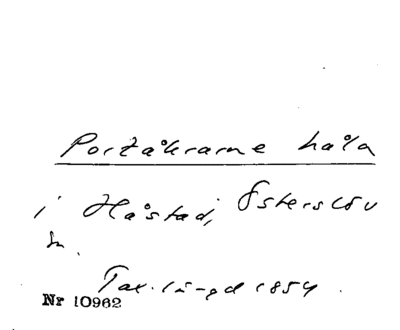 Portåkrarne hala
i Håstad, Österslöv
sn.
Tax.längd 1854.
Nr 10962